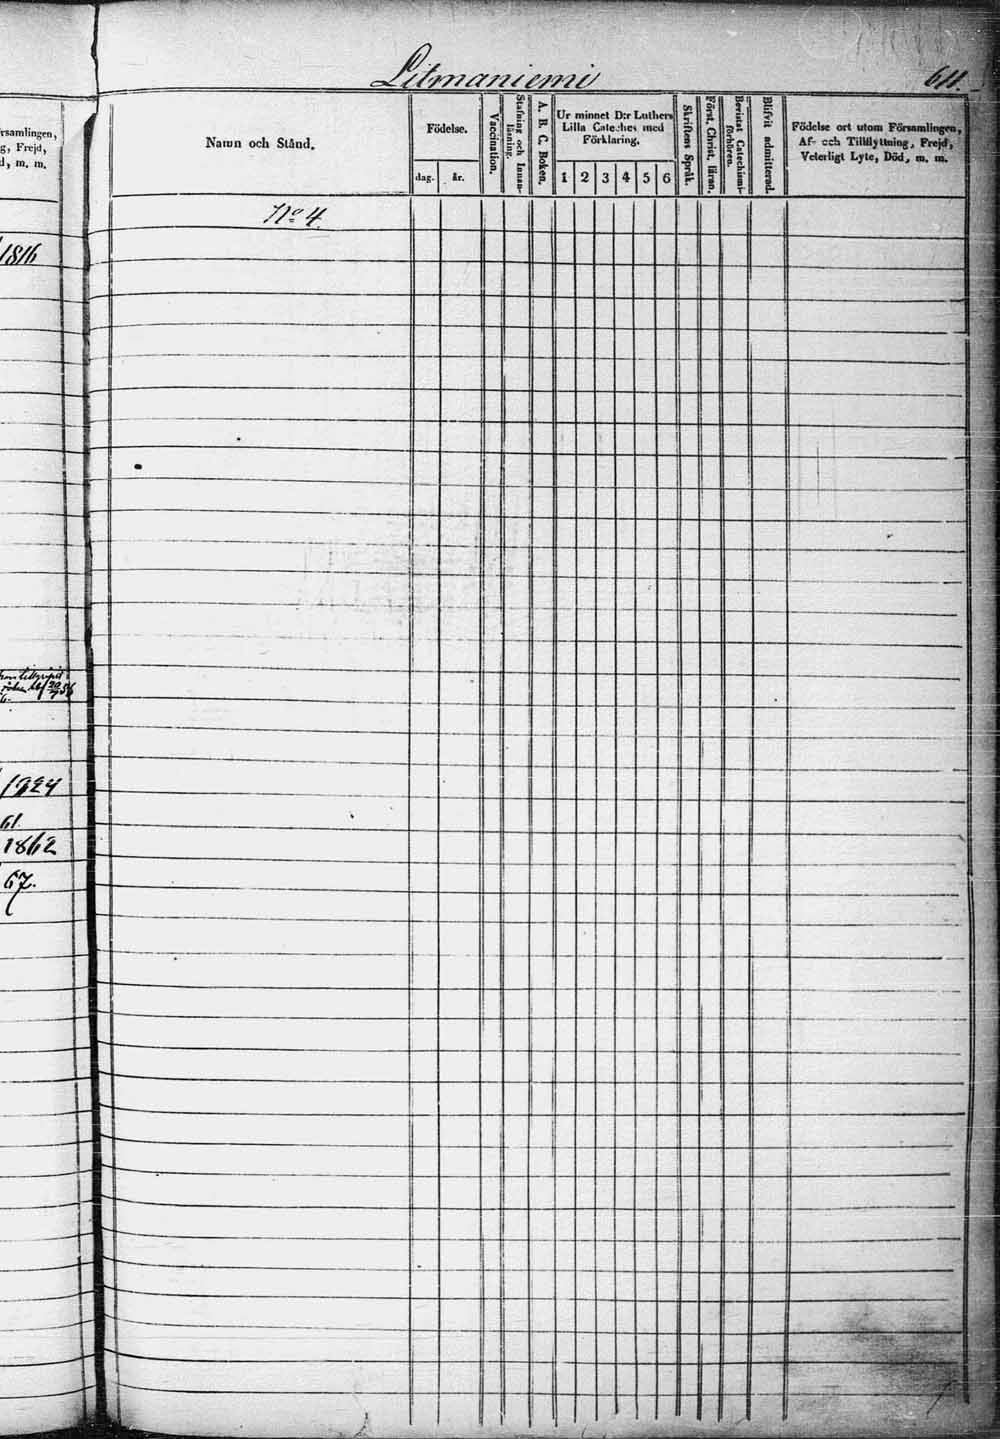 Litmaniemi
611.
rsamlingen,
g, Frejd,
d, m. m.
Namn och Stånd.
Födelse.
dag.
år.
Vaccination.
Stafning och Innan-
läsning.
A. B. C. Boken.
Ur minnet D:r Luthers
Lilla Cateches med
Förklaring.
1 2 3 4 5 6
Skriftens Språk.
Först. Christ. läran.
Bevistat Catechismi-
förhören.
Blifvit admitterad.
Födelse ort utom Församlingen,
Af- och Tillflyttning, Frejd,
Veterligt Lyte, Död, m. m.
No 4.
1816
1824
61.
1862
67.